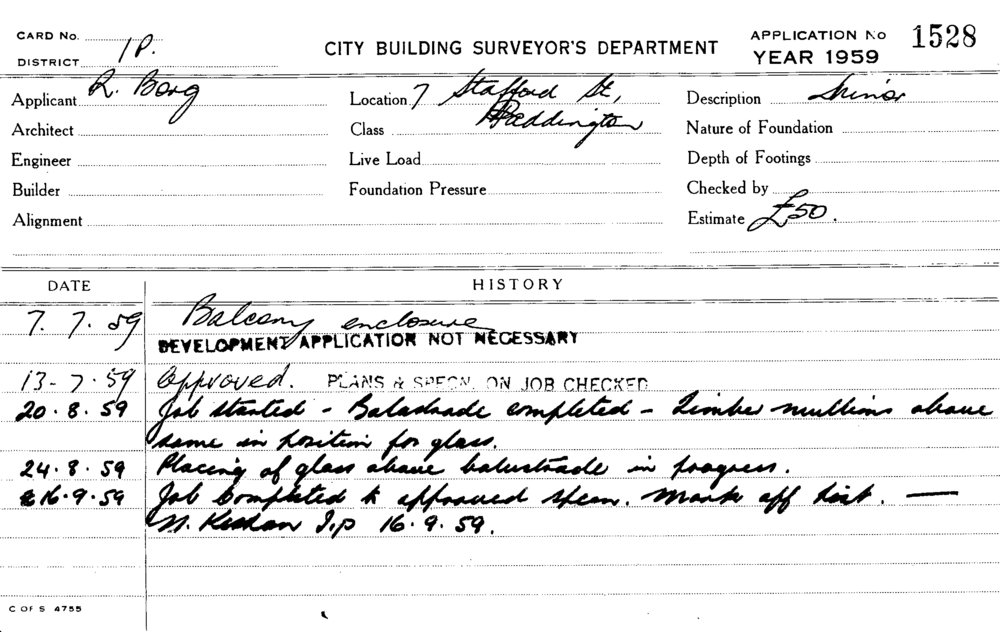 CARD No.
DISTRICT 1P.
CITY BUILDING SURVEYOR'S DEPARTMENT
APPLICATION No 1528
YEAR 1959
Applicant R. Borg
Location 7 Stafford St,
Paddington
Description Minor
Architect
Class
Nature of Foundation
Engineer
Live Load
Depth of Footings
Builder
Foundation Pressure
Checked by
Alignment
Estimate £50.
DATE HISTORY
7. 7. 59 Balcony enclosure
DEVELOPMENT APPLICATION NOT NECESSARY
13-7.59 Approved. PLANS & SPECN. ON JOB CHECKED
20.8.59 Job started - Balustrade completed - Timber mullions above
same in position for glass.
24.8.59 Placing of glass above balustrade in progress.
16.9.59 Job Completed to approved specn. Mark off list. —
N. I.P 16.9.59.
C OF S 4755